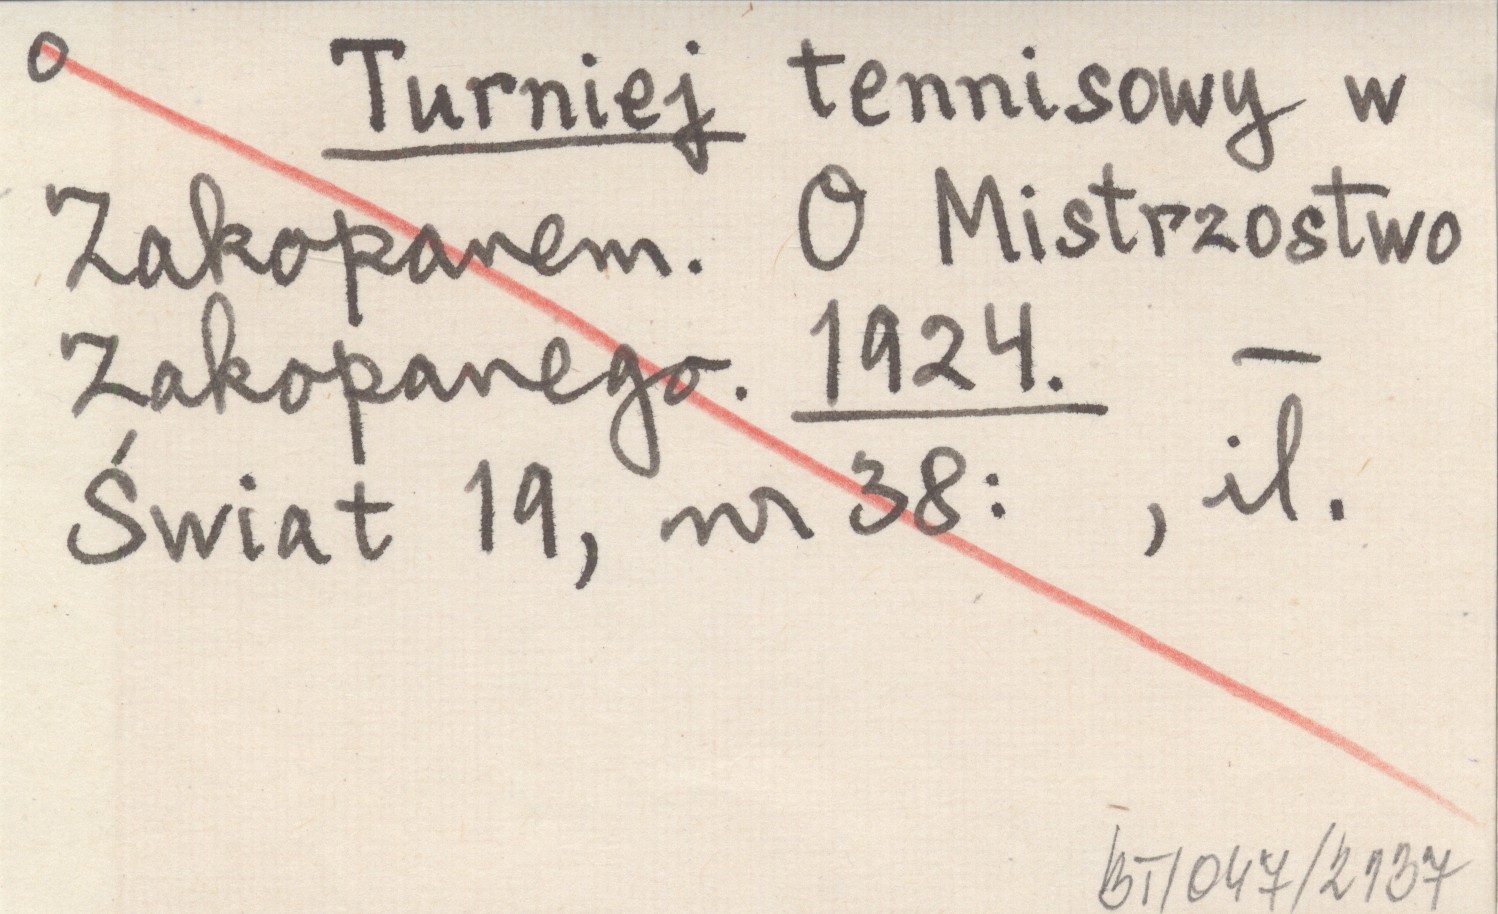 o Turniej tennisowy w
Zakopanem. O Mistrzostwo
Zakopanego. 1924. —
Świat 19, nr 38: , il.
BT/047/2137